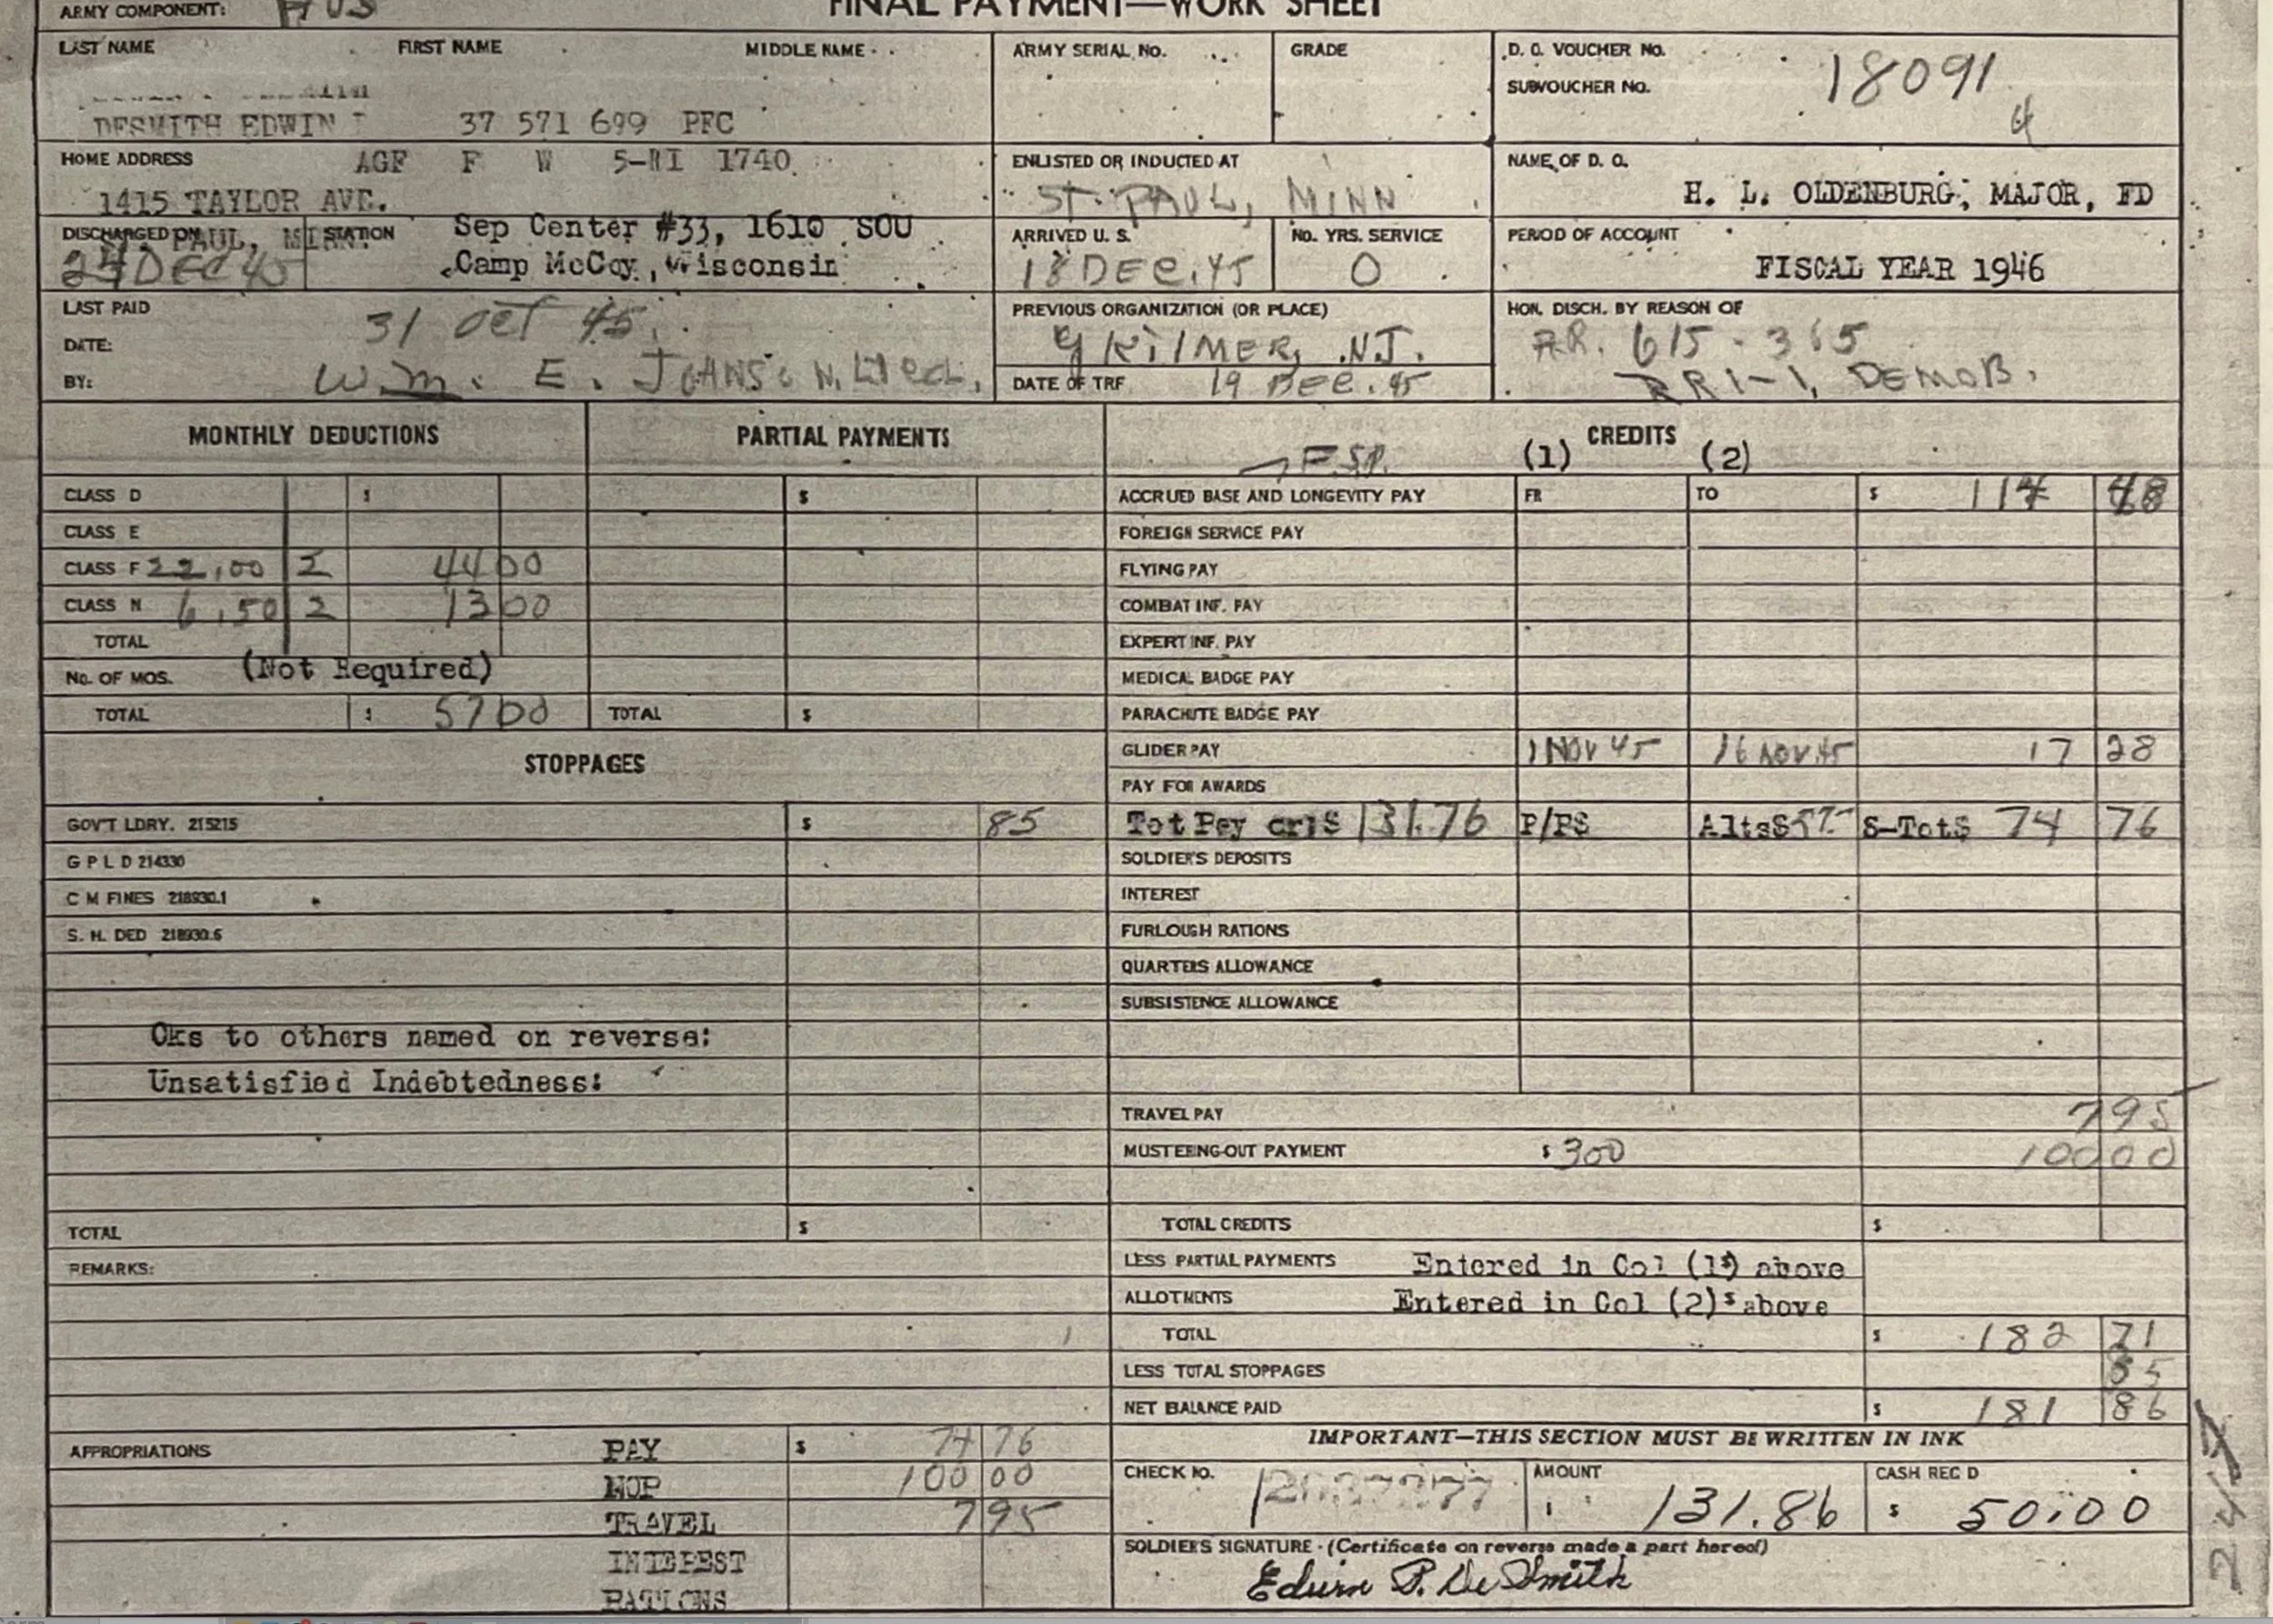 ARMY COMPONENT: AUS
FINAL PAYMENT—WORK SHEET
LAST NAME FIRST NAME MIDDLE NAME
DESMITH EDWIN 37 571 699 PFC
ARMY SERIAL NO.
GRADE
D. O. VOUCHER NO. 18091
SUBVOUCHER NO. 4
HOME ADDRESS AGF F W 5-RI 1740
1415 TAYLOR AVE.
ST. PAUL, MINN.
ENLISTED OR INDUCTED AT
ST. PAUL, MINN
NAME OF D. O.
H. L. OLDENBURG, MAJOR, FD
DISCHARGED ON
24 DEC 45
STATION
Sep Center #33, 1610 SOU
Camp McCoy, Wisconsin
ARRIVED U. S.
18 DEC. 45
NO. YRS. SERVICE
0
PERIOD OF ACCOUNT
FISCAL YEAR 1946
LAST PAID
DATE: 31 OCT 45
BY: Wm. E. JOHNSON,
PREVIOUS ORGANIZATION (OR PLACE)
KILMER, N.J.
DATE OF TRF 19 DEC. 45
HON. DISCH. BY REASON OF
AR. 615-365
RR1-1, DEMOB.
MONTHLY DEDUCTIONS
CLASS D $
CLASS E
CLASS F 22.00 2 44 00
CLASS N 6.50 2 13 00
TOTAL
NO. OF MOS. (Not Required)
TOTAL $ 57 00
PARTIAL PAYMENTS
$
TOTAL $
STOPPAGES
GOV'T LDRY. 215215 $ 85
G P L D 214330
C M FINES 218930.1
S. H. DED 218930.6
Cks to others named on reverse:
Unsatisfied Indebtedness:
TOTAL $
REMARKS:
APPROPRIATIONS PAY $ 74 76
MOP 100 00
TRAVEL 7 95
INTEREST
RATIONS
CREDITS
F.S.P. (1) (2)
ACCRUED BASE AND LONGEVITY PAY FR TO $ 114 48
FOREIGN SERVICE PAY
FLYING PAY
COMBAT INF. PAY
EXPERT INF. PAY
MEDICAL BADGE PAY
PARACHUTE BADGE PAY
GLIDER PAY 1 NOV 45 16 NOV. 45 17 28
PAY FOR AWARDS
Tot Pay cr$ 131.76 P/P$ Alts$ 57.- S-Tot$ 74 76
SOLDIER'S DEPOSITS
INTEREST
FURLOUGH RATIONS
QUARTERS ALLOWANCE
SUBSISTENCE ALLOWANCE
TRAVEL PAY 7 95
MUSTERING-OUT PAYMENT $ 300 100 00
TOTAL CREDITS $
LESS PARTIAL PAYMENTS Entered in Col (1) above
ALLOTMENTS Entered in Col (2) above
TOTAL $ 182 71
LESS TOTAL STOPPAGES 85
NET BALANCE PAID $ 181 86
IMPORTANT—THIS SECTION MUST BE WRITTEN IN INK
CHECK NO.
AMOUNT
$ 131.86
CASH REC'D
$ 50.00
SOLDIER'S SIGNATURE - (Certificate on reverse made a part hereof)
Edwin P. De Smith